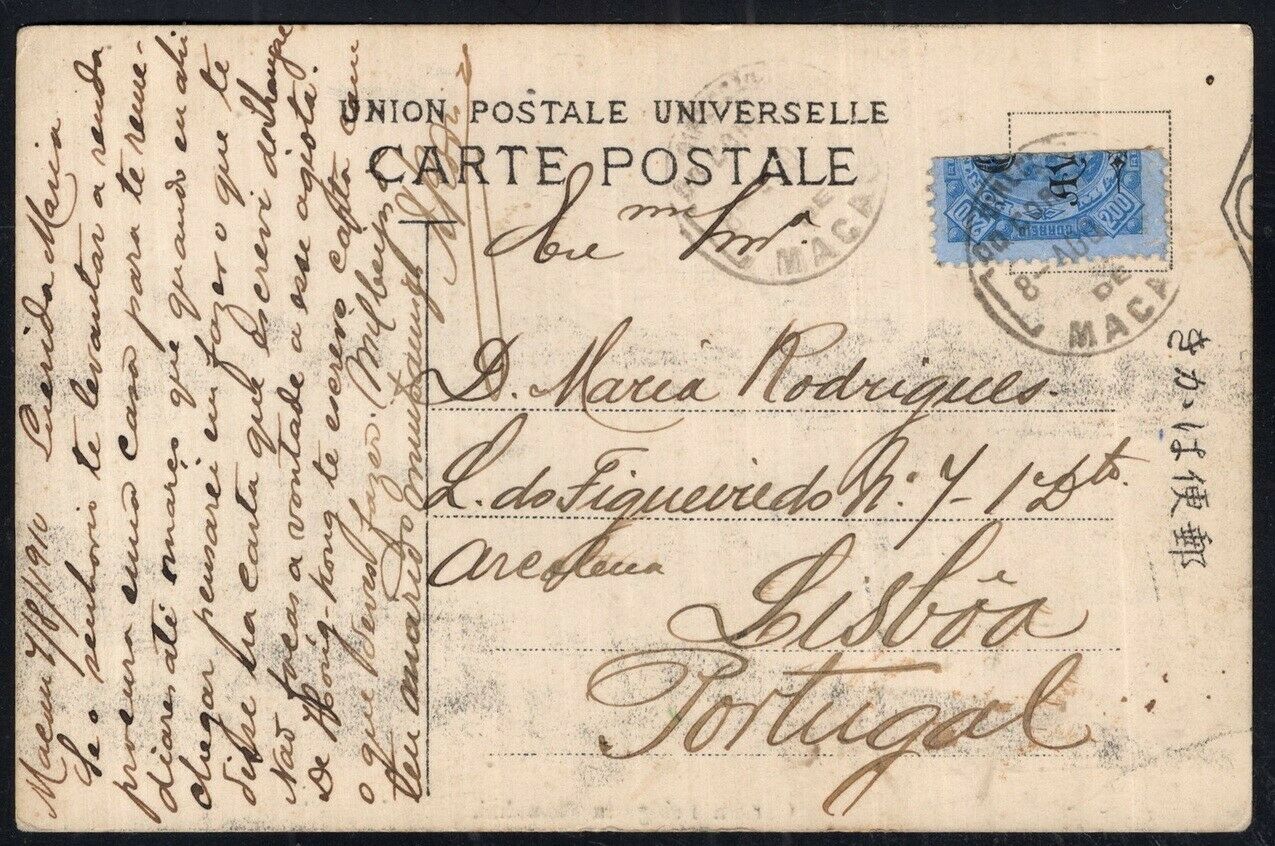 UNION POSTALE UNIVERSELLE
CARTE POSTALE
Macau 7/8/1910 Querida Maria
Se o senhorio te levantar a renda
procura uma casa para te reme-
diares até mares que quando eu ahi
chegar pensarei em fazer o que te
disse na carta que escrevi de Shangae
Não faças a vontade a esse agiota.
De Hong-kong te escrevo carta com
o que deves fazer. Mil beijos
teu marido muito amigo
Exma
D. Maria Rodrigues.
L. do Figueiredo N.º 7-1 Dto.
Lisbôa
Portugal
200 CORREIO 200
8-AUG
DE
MACAU
MACAU
きかは便郵